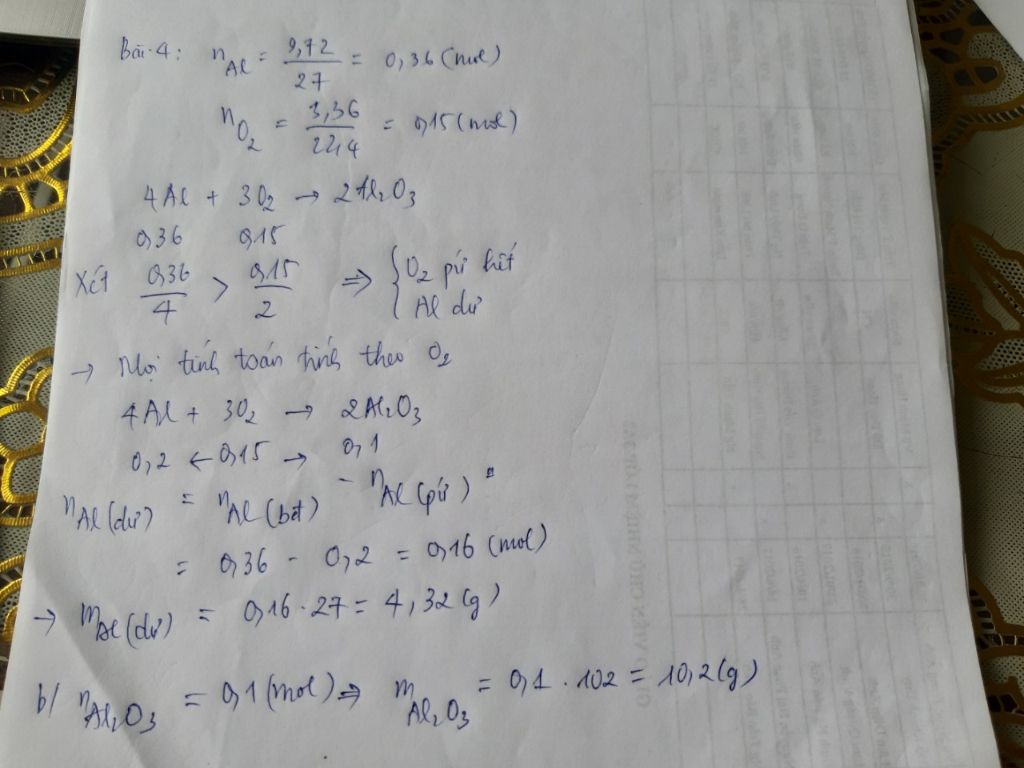 Bài 4: n Al = 9,72 / 27 = 0,36 (mol)
n O2 = 3,36 / 22,4 = 0,15 (mol)
4Al + 3O2 → 2Al2O3
0,36 0,15
Xét 0,36 / 4 > 0,15 / 2 ⇒ { O2 pứ hết
Al dư
→ Mọi tính toán tính theo O2
4Al + 3O2 → 2Al2O3
0,2 ← 0,15 → 0,1
n Al (dư) = n Al (bđ) - n Al (pứ)
= 0,36 - 0,2 = 0,16 (mol)
→ m Al (dư) = 0,16 . 27 = 4,32 (g)
b/ n Al2O3 = 0,1 (mol) ⇒ m Al2O3 = 0,1 . 102 = 10,2 (g)